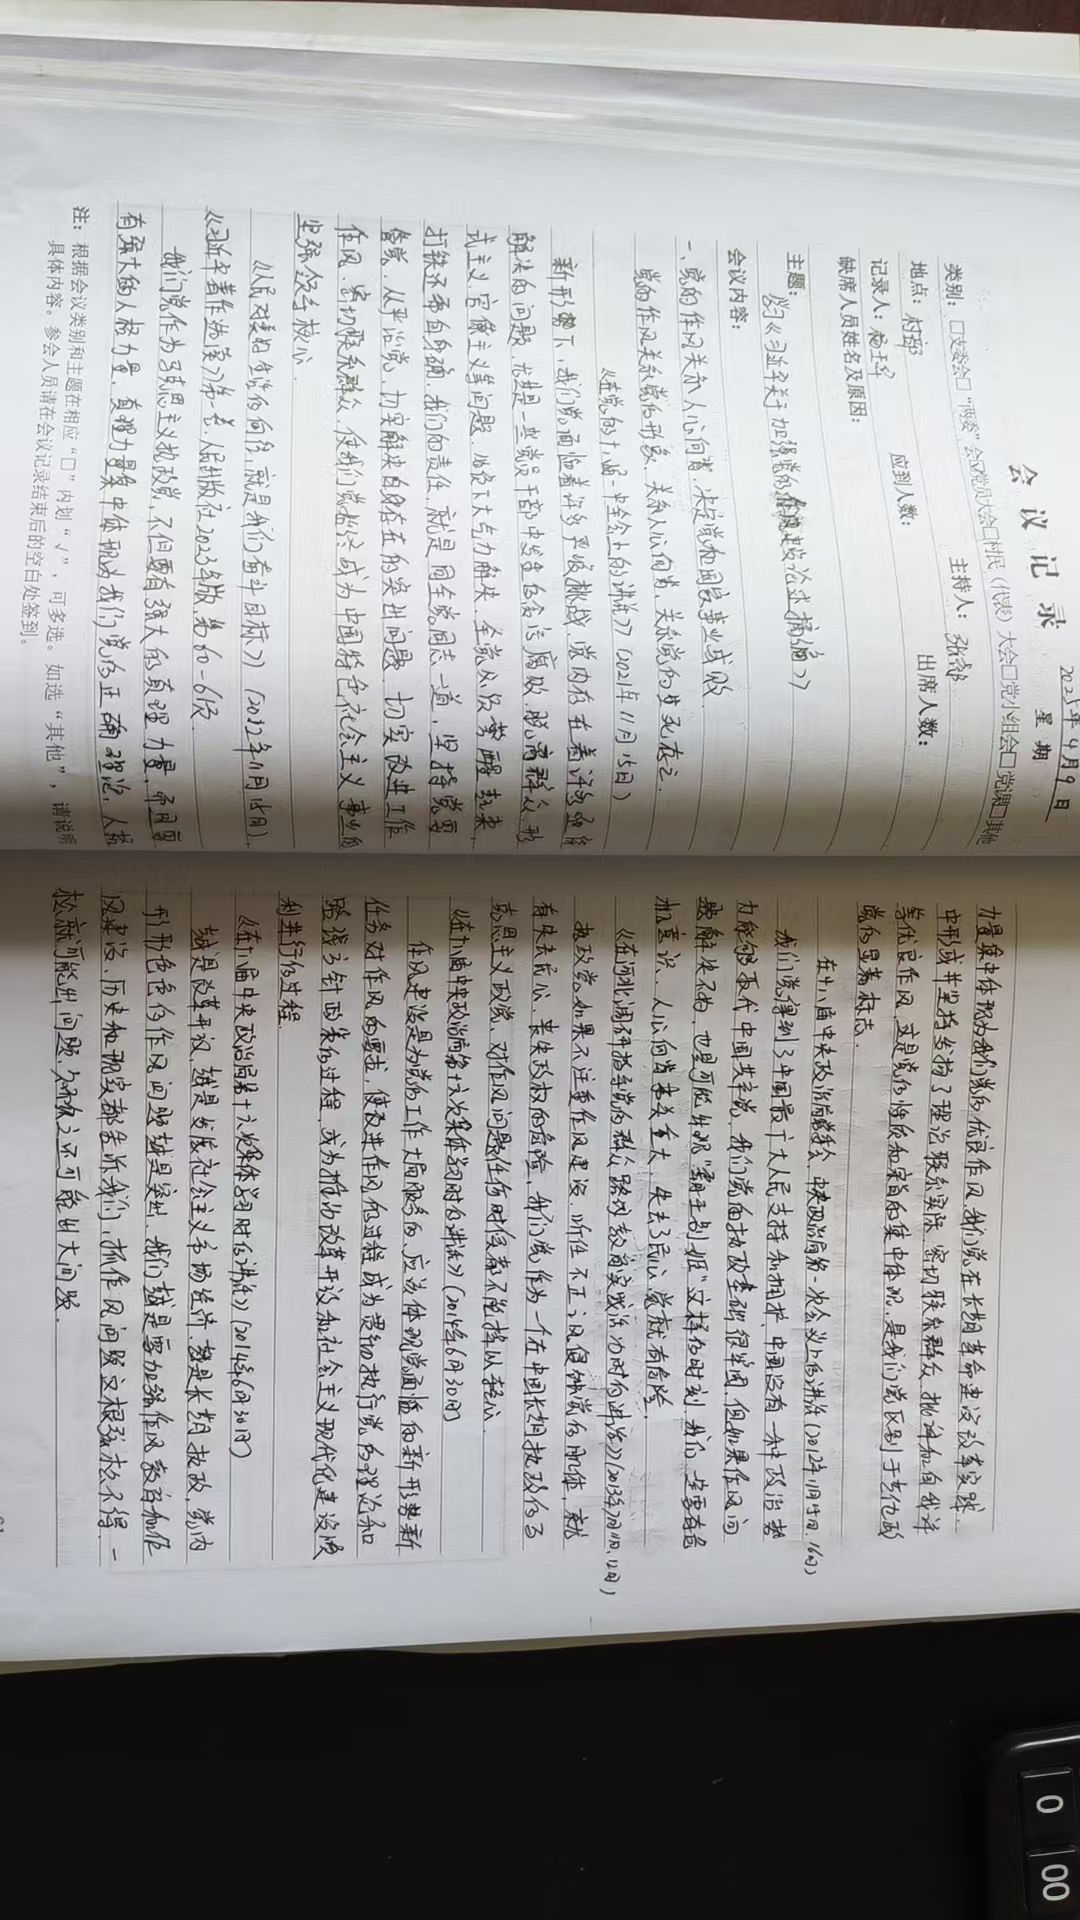 会议记录
2025年4月9日
星期
类别：□支委会□“两委”会☑党员大会□村民（代表）大会□党小组会□党课□其他
地点：村部 主持人：
记录人： 应到人数： 出席人数：
缺席人员姓名及原因：
主题：
学习《习近平关于加强党的作风建设论述摘编》
会议内容：
一、党的作风关系人心向背，决定党和国家事业成败
党的作风关系党的形象，关系人心向背，关系党的生死存亡．
《在党的十八届一中全会上的讲话》（ 11月15日）
新形势下，我们党面临着许多严峻挑战，党内存在着许多亟待
解决的问题．尤其是一些党员干部中发生的贪污腐败、脱离群众、形
式主义、官僚主义等问题，必须下大气力解决．全党必须警醒起来．
打铁还需自身硬．我们的责任，就是同全党同志一道，坚持党要
管党、从严治党，切实解决自身存在的突出问题，切实改进工作
作风，密切联系群众，使我们党始终成为中国特色社会主义事业的
坚强领导核心．
《人民对美好生活的向往，就是我们的奋斗目标》（2012年11月15日），
《习近平著作选读》第一卷，人民出版社2023年版，第60-61页．
我们党作为马克思主义执政党，不但要有强大的真理力量，而且要
有强大的人格力量，真理力量集中体现为我们党的正确理论，人格
注：根据会议类别和主题在相应“□”内划“√”，可多选。如选“其他”，请说明
具体内容。参会人员请在会议记录结束后的空白处签到。
力量集中体现为我们党的优良作风．我们党在长期革命建设改革实践
中形成并坚持发扬了理论联系实际、密切联系群众、批评和自我评
等优良作风．这是党的性质和宗旨的集中体现，是我们党区别于其他政
党的显著标志．
在十八届中央政治局常委会、中央政治局第一次会议上的讲话（2012年11月15日、16日）
我们党得到了中国最广大人民支持和拥护，中国没有一种政治势
力能够取代中国共产党，我们党的执政基础很牢固，但如果作风问
题解决不好，也是可能出现“霸王别姬”这样的时刻．我们一定要有危
机意识．人心向背事关重大，失去了民心党就有危险．
《在河北调研指导党的群众路线教育实践活动时的讲话》（2013年7月11日、12日）
执政党如果不注重作风建设，听任不正之风侵蚀党的肌体，就
有失去民心、丧失政权的危险．我们党作为一个在中国长期执政的马
克思主义政党，对作风问题任何时候都不能掉以轻心．
《在十八届中央政治局第十六次集体学习时的讲话》（2014年6月30日）
作风建设是为党的工作大局服务的，应该体现党面临的新形势新
任务对作风的要求，使改进作风的过程成为贯彻执行党的理论和
路线方针政策的过程，成为推动改革开放和社会主义现代化建设顺
利进行的过程．
《在十八届中央政治局第十六次集体学习时的讲话》（2014年6月30日）
越是改革开放，越是发展社会主义市场经济，越是长期执政，党内
形形色色的作风问题越是突出，我们越是要加强作风教育和作
风建设．历史和现实都告诉我们，抓作风问题这根弦松不得，一
松就可能出问题， 还可能出大问题．
0
00